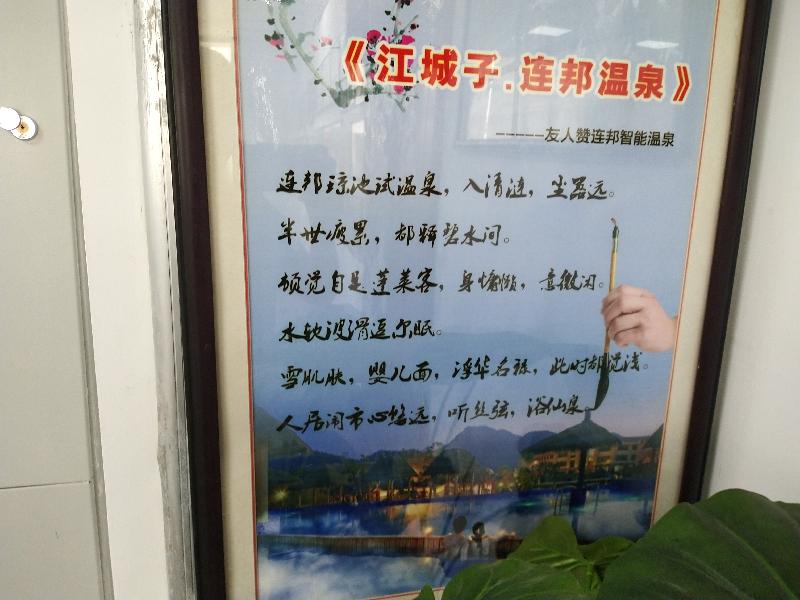 《江城子.连邦温泉》
-----友人赞连邦智能温泉
连邦琼池试温泉，入清涟，尘嚣远。
半世疲累，都释碧水间。
顿觉自是蓬莱客，身慵懒，意微闲。
水软波滑逗尔眠。
雪肌肤，婴儿面，浮华名、此时都觉浅。
人居闹市心悠远，听丝弦，浴仙泉。